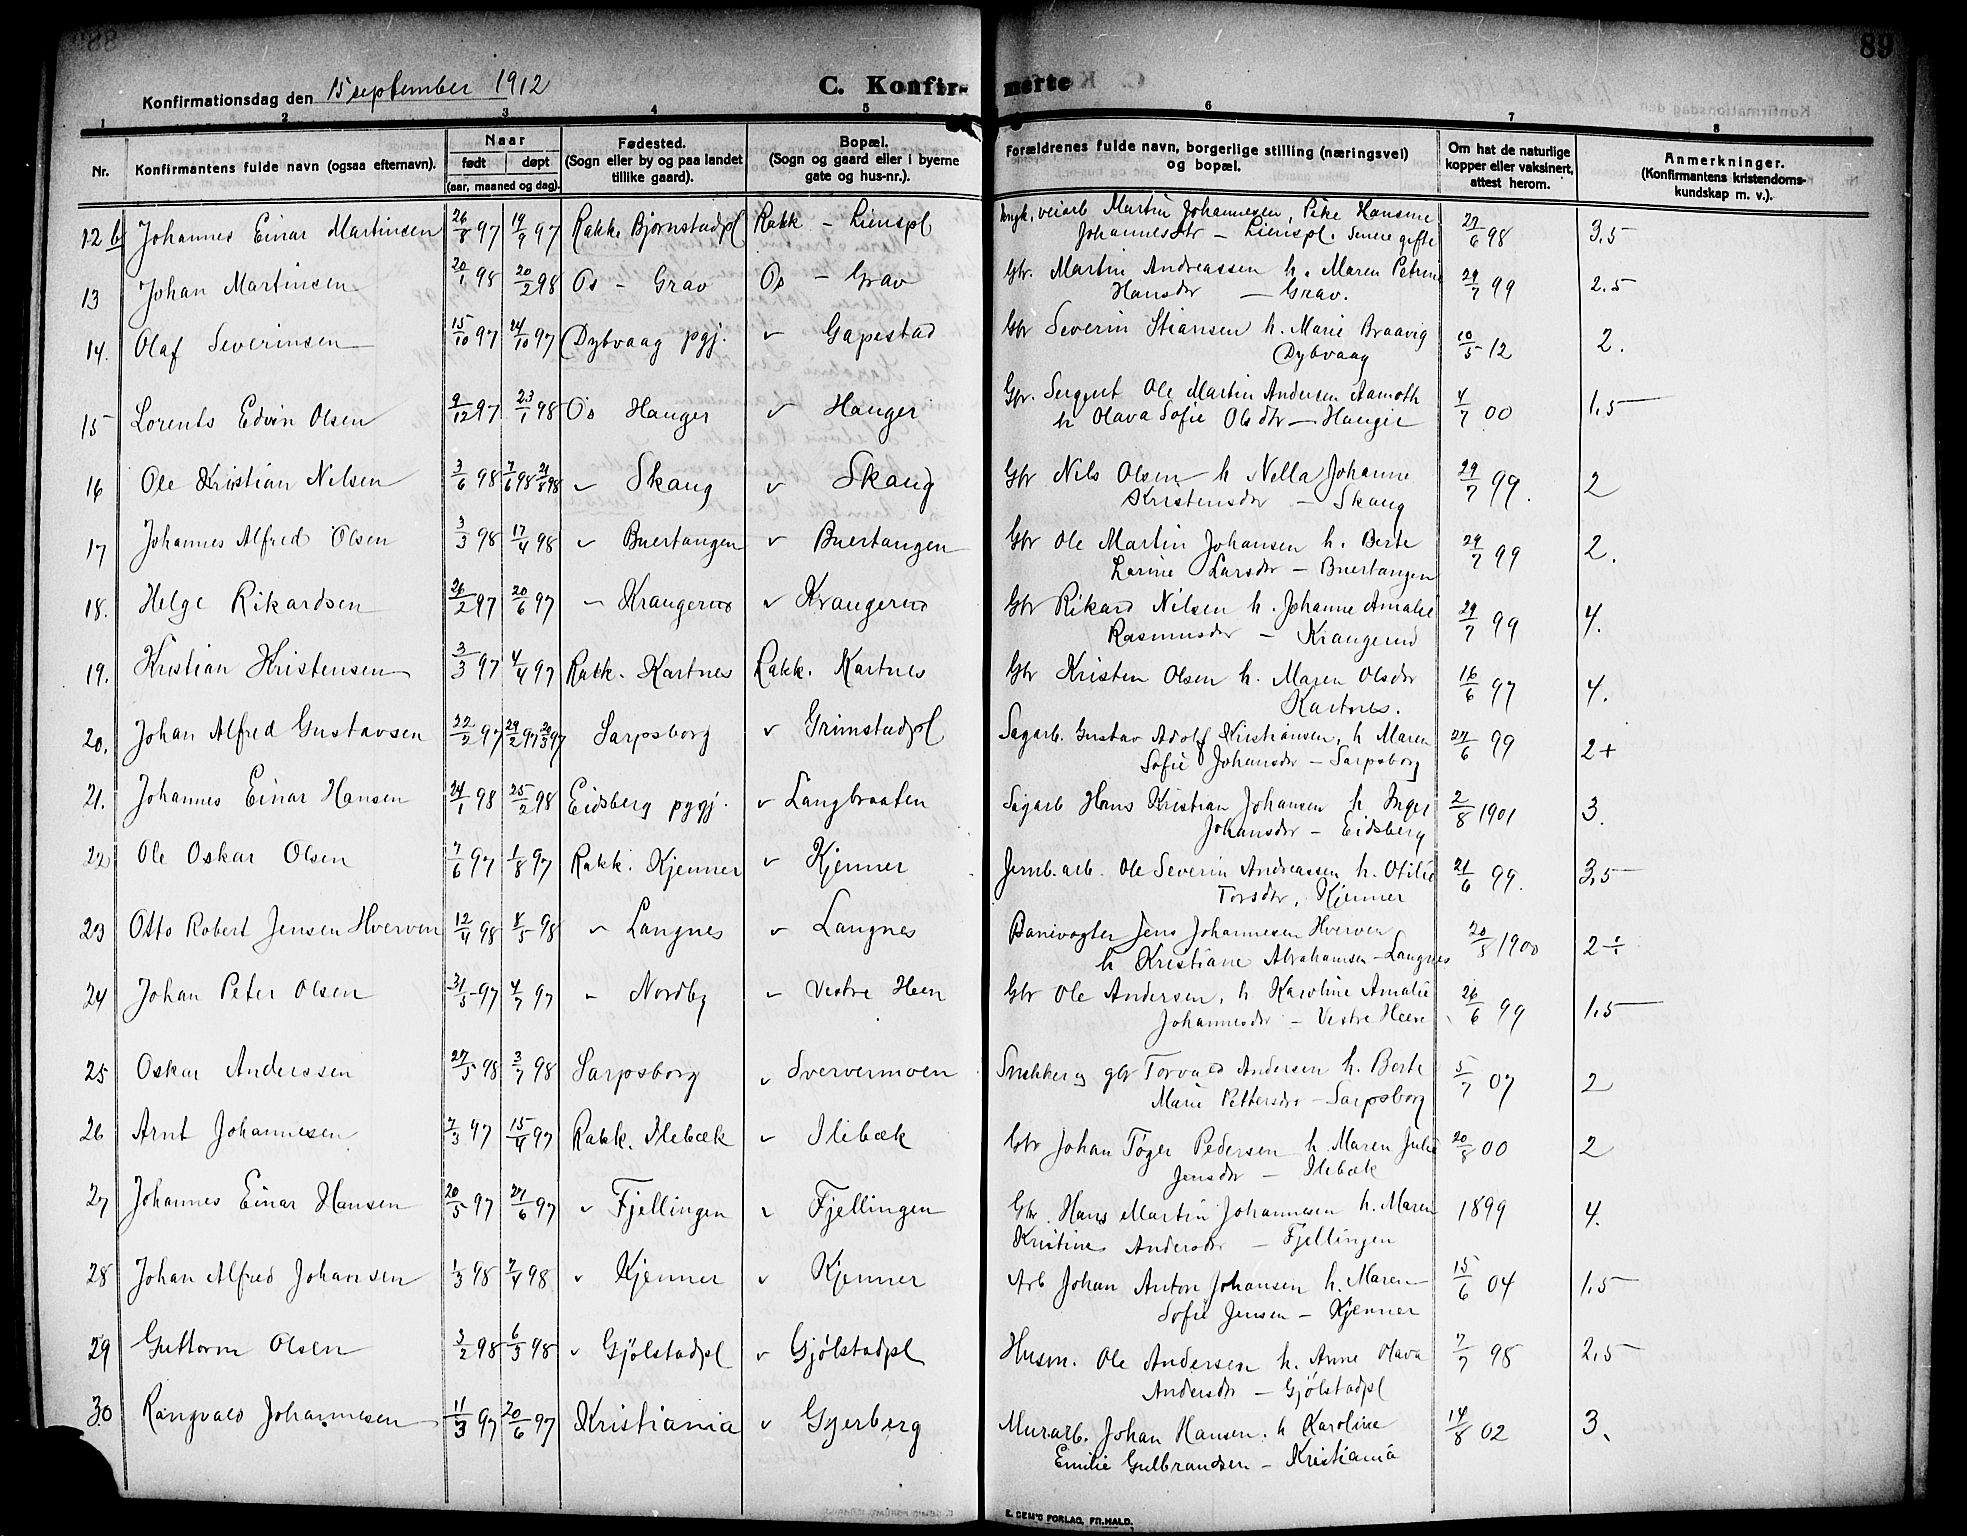 89
Konfirmationsdag den 15 september 1912
C. Konfir- merte
1 2 3 4 5 6 7 8
Nr.
Konfirmantens fulde navn (ogsaa efternavn).
Naar
født
døpt
(aar, maaned og dag).
Fødested.
(Sogn eller by og paa landet
tillike gaard).
Bopæl.
(Sogn og gaard eller i byerne
gate og hus-nr.).
Forældrenes fulde navn, borgerlige stilling (næringsvei)
og bopæl.
Om hat de naturlige
kopper eller vaksinert,
attest herom.
Anmerkninger.
(Konfirmantens kristendoms-
kundskap m. v.).
12 b Johannes Einar Martinsen 26/8 97 19/9 97 Rakk. Bjørnstadpl Rakk - Lienspl Ungk, veiarb Martin Johannesen, Pike Hansine 27/6 98 3,5
Johannesdtr - Lienspl. Senere gifte
13 Johan Martinsen 20/1 98 20/2 98 Os - Grav Os - Grav Gbr. Martin Andreassen h. Maren Petrine 29/7 99 2.5
Hansdtr - Grav.
14. Olaf Severinsen 15/10 97 24/10 97 Dybvaag pgj. " Gapestad Gbr Severin Stiansen h. Marie Braavig 10/5 12 2.
Dybvaag
15 Lorents Edvin Olsen 9/12 97 23/1 98 Os Hauger " Hauger Gbr. Sergent Ole Martin Andersen Aamoth 4/7 00 1,5
h Olava Sofie Olsdtr - Haugie
16 Ole Kristian Nilsen 3/6 98 7/6 98 21/8 98 " Skaug " Skaug Gbr Nils Olsen h Nella Johanne 29/7 99. 2
Kristensdtr - Skaug
17 Johannes Alfred Olsen 3/3 98 17/4 98 " Buertangen " Buertangen Gbr Ole Martin Johansen h. Berte 29/7 99 2.
Larine Larsdtr - Buertangen
18. Helge Rikardsen 26/2 97 20/6 97 " Krangerud " Krangerud Gbr Rikard Nilsen h. Johanne Amalie 29/7 99 4.
Rasmusdtr - Krangerud
19. Kristian Kristensen 3/3 97 4/4 97 Rakk. Kartnes Rakk. Kartnes Gbr Kristen Olsen h. Maren Olsdtr 16/6 97 4.
Kartnes.
20. Johan Alfred Gustavsen 22/2 97 29/2 97 20/3 97 Sarpsborg " Grimstadpl Sagarb. Gustav Adolf Kristiansen, h Maren 27/6 99 2+
Sofie Johansdtr - Sarpsborg
21. Johannes Einar Hansen 24/1 98 25/2 98 Eidsberg pgj. " Langbraaten Sagarb Hans Kristian Johansen h Inger 2/8 1901 3.
Johansdtr - Eidsberg
22 Ole Oskar Olsen 7/6 97 1/8 97 Rakk. Kjenner " Kjenner Jernb.arb. Ole Severin Andreassen h. Otilie 21/6 99. 3,5
Torsdtr, Kjenner
23 Otto Robert Jensen Hverven 12/4 98 8/5 98 " Langnes " Langnes Banevogter Jens Johannesen Hverven 20/5 1900 2 ÷
h Kristiane Abrahamsen - Langnes
24 Johan Peter Olsen 31/5 97 4/7 97 " Nordby " Vestre Heen Gbr Ole Andersen, h Karoline Amalie 26/6 99 1,5
Johannesdtr - Vestre Heen
25 Oskar Anderssen 27/5 98 3/7 98 Sarpsborg " Svervemoen Snekker og gbr Torvald Andersen h. Berte 5/7 07 2
Marie Pettersdtr - Sarpsborg
26 Arnt Johannesen 7/3 97 15/4 97 Rakk. Ilebæk " Ilebæk Gbr Johan Tøger Pedersen h. Maren Julie 20/8 00 2
Jensdtr - Ilebæk
27 Johannes Einar Hansen 20/5 97 27/6 97 " Fjellingen " Fjellingen Gbr. Hans Martin Johannesen h. Maren 1899 4.
Kristine Andersdtr - Fjellingen
28 Johan Alfred Johansen 1/3 98 7/4 98 " Kjenner " Kjenner Arb Johan Anton Johansen h. Maren 15/6 04 1.5
Sofie Jensen - Kjenner
29 Guttorm Olsen 3/2 98 6/3 98 " Gjölstadpl " Gjölstadpl Husm. Ole Andersen h. Anne Olava 7/7 98 2,5
Andersdtr - Gjölstadpl
30 Rangvald Johannesen 11/3 97 20/6 97 Kristiania " Gjerberg Murarb. Johan Hansen. h Karoline 14/8 02 3.
Emilie Gulbrandsen - Kristiania
E. SEM'S FORLAG, FR.HALD.